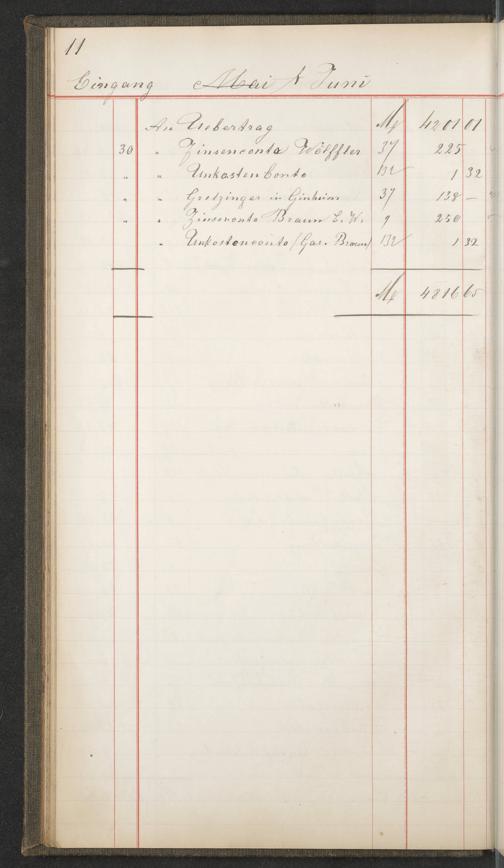 11
Eingang Mai & Juni
An Uebertrag M 4201 01
30 " Zinsenconto Wölffler 37 225
" " Unkosten Conto 132 1 32
" " Gretzinger in Ginheim 37 138 –
" " Zinsconto Braun E. W. 9 250
" Unkostenconto (Gas. Braun) 132 1 32
M 4816 65